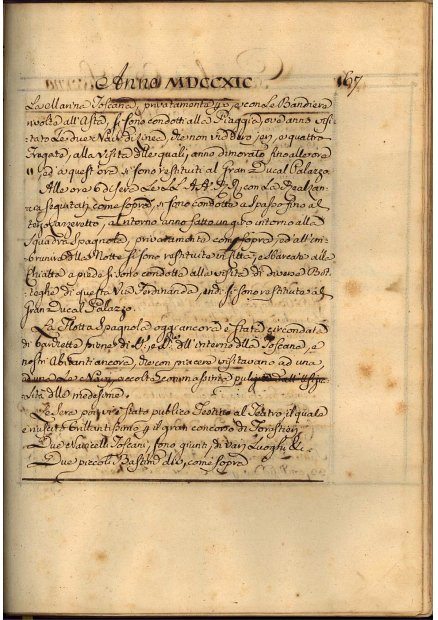 Anno MDCCXIC 167
La Marina Toscana, privatamente però, e con le Bandiere
involte all'Asta, si sono condotti alla Spiaggia, ove anno visi-
tato Le due Navi di Linea, che non viddero jeri, e quattro
Fregate, alla Visita delle quali, anno dimorato fino alle ore
ed a quest'ora si sono restituiti al Gran Ducal Palazzo.
Alle ore 6 di Sera Le LL. AA. RR. con La Real
seguitati come sopra, si sono condotte a Spasso fino al
Lazzeretto, anno fatto un giro intorno alla
Squadra Spagnola, privatamente come sopra, ed all'im-
brunire della Notte si sono restituite in Città, e sbarcate alla
a piedi si sono condotte alla visita di diverse Bot-
teghe di questa Via Ferdinanda, indi si sono restituite al
Gran Ducal Palazzo.
La Flotta Spagnola oggi ancora è stata circondata
di barchette piene di dell'interno della Toscana, e
nostri Abitanti ancora, che con piacere visitavano ad una
ad una Le Navi, e colla somma
delle medesime.
La Sera poi vi è stato publico Festino al Teatro, il quale
è riuscito brillantissimo per il gran concorso di Forestieri.
Due Navicelli Toscani, sono giunti, di Varj Luoghi, &
Due piccoli Bastimenti come sopra